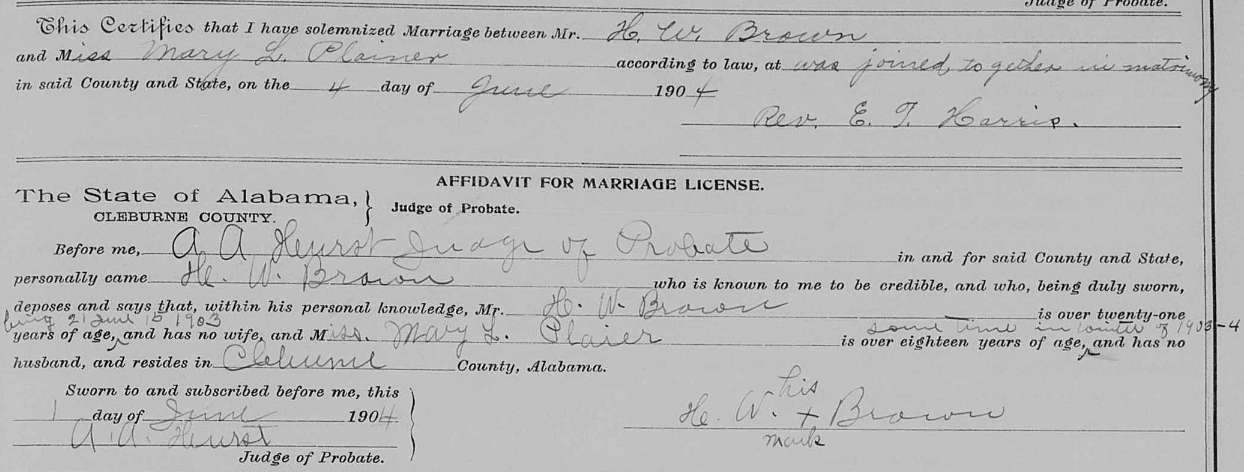 Judge of Probate.
This Certifies that I have solemnized Marriage between Mr. H. W. Brown
and Miss Mary L. Plainer according to law, at was joined, together in matrimony
in said County and State, on the 4 day of June 1904
Rev. E. T. Harris.
AFFIDAVIT FOR MARRIAGE LICENSE.
The State of Alabama,
CLEBURNE COUNTY.
Judge of Probate.
Before me, A A Hurst Judge of Probate in and for said County and State,
personally came H. W. Brown who is known to me to be credible, and who, being duly sworn,
deposes and says that, within his personal knowledge, Mr. H. W. Brown is over twenty-one
being 21 June 15 1903 some time in winter of 1903-4
years of age, and has no wife, and Miss. Mary L. Plaier is over eighteen years of age, and has no
husband, and resides in Cleburne County, Alabama.
Sworn to and subscribed before me, this
1 day of June 1904
A. A. Hurst
Judge of Probate.
his
H. W. + Brown
mark